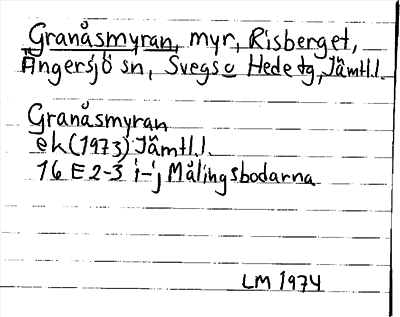 Granåsmyran, myr, Risberget,
Ängersjö sn, Svegs o Hede tg, Jämtl.l.
Granåsmyran
ek (1973) Jämtl.l.
16 E 2-3 i-j Målingsbodarna
LM 1974